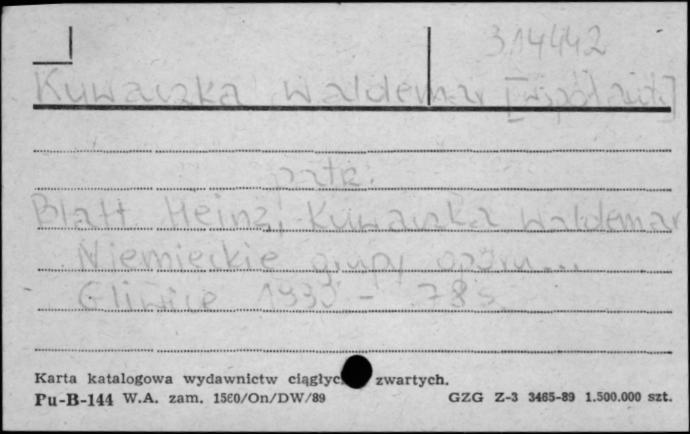 314442
Kuwaczka Waldemar [współaut.]
patrz:
Blatt Heinz, Kuwaczka Waldemar
Niemieckie grupy oporu...
Gliwice 1995 - 78 s
Karta katalogowa wydawnictw ciągłyc zwartych.
Pu-B-144 W.A. zam. 1560/On/DW/89 GZG Z-3 3465-89 1.500.000 szt.